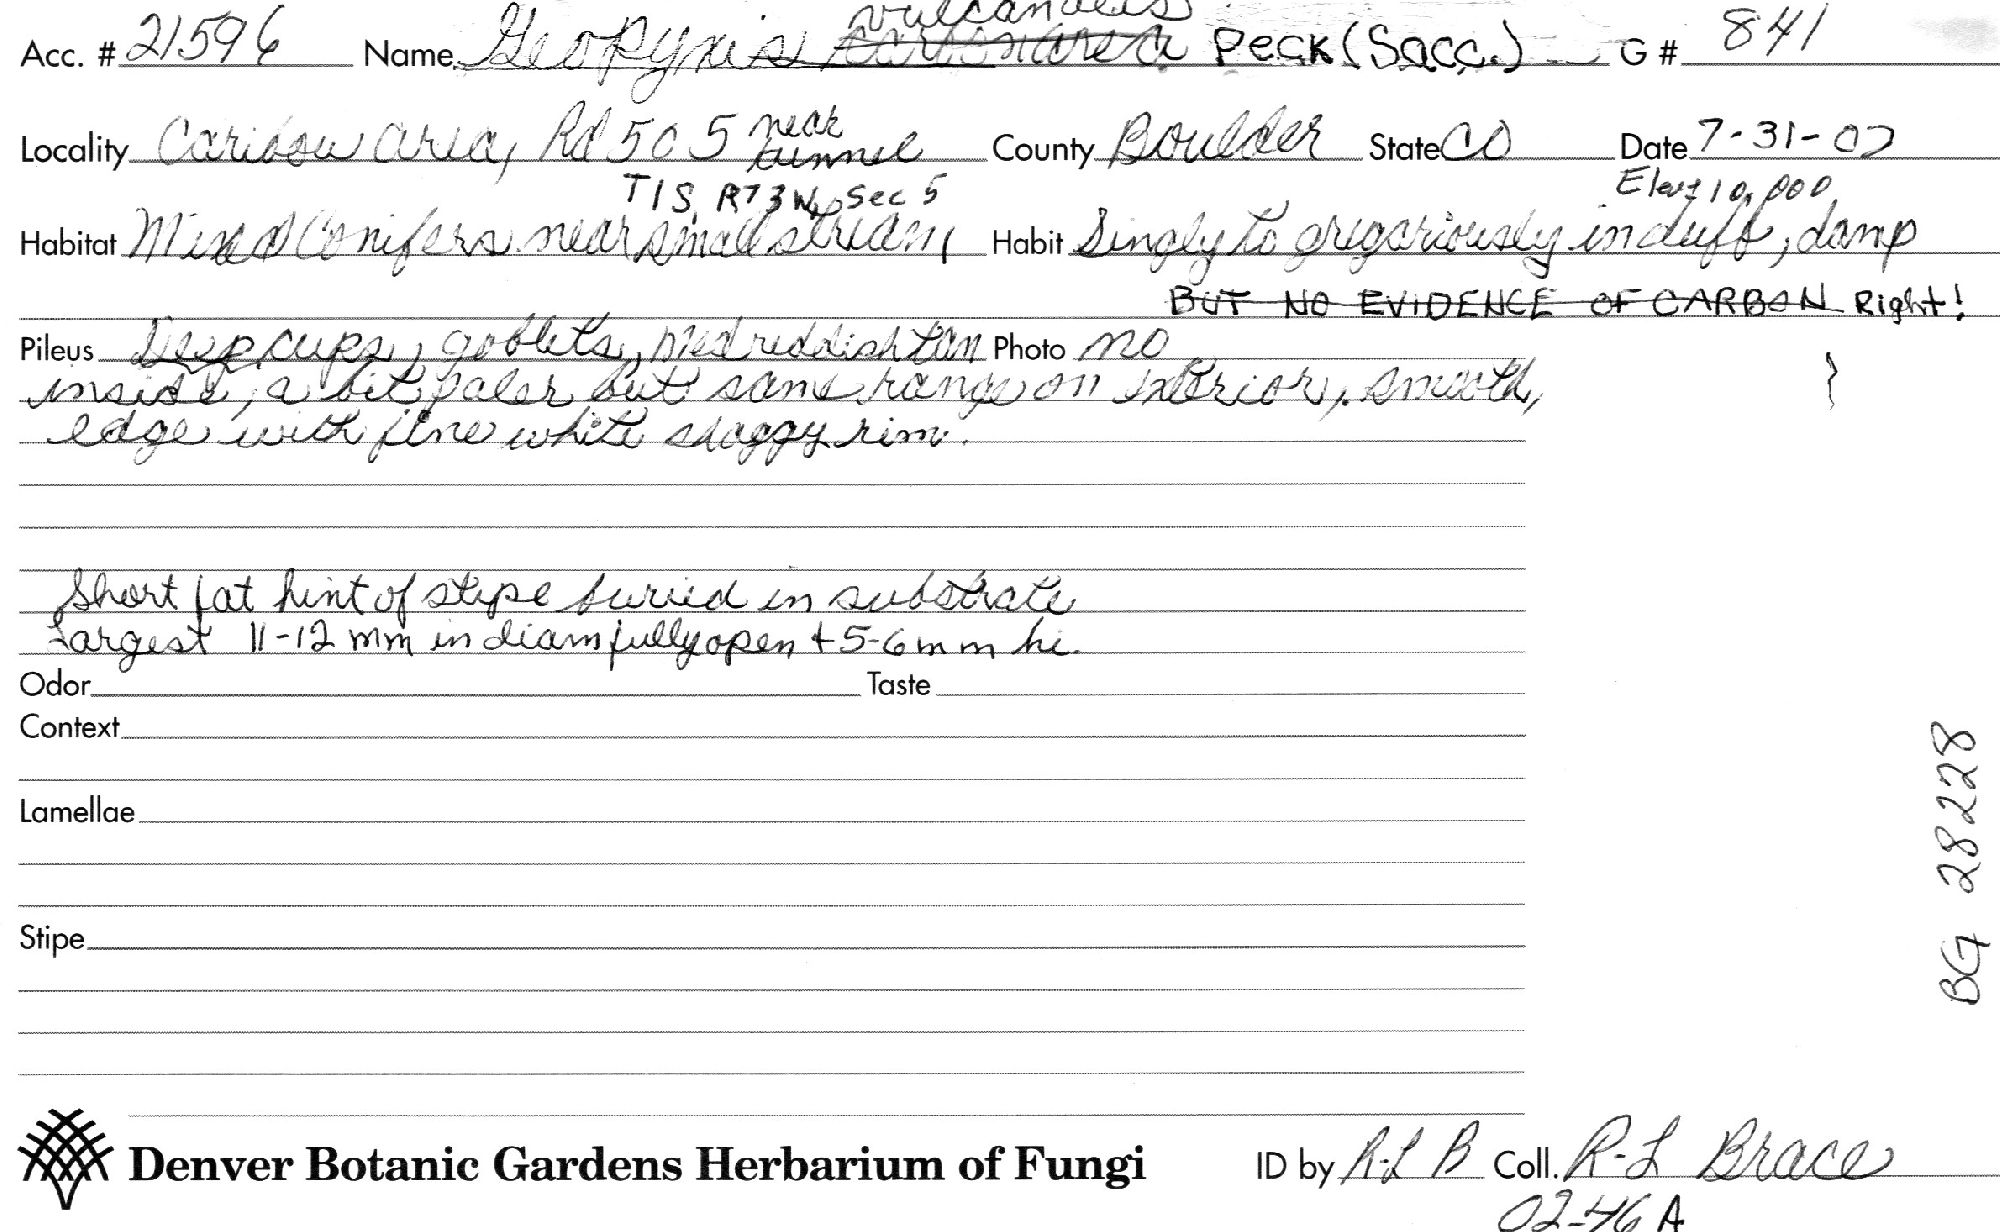 vulcanalis
Acc. # 21596 Name Geopyxis carbonarea Peck (Sacc.) G # 841
Locality Caribou area, Rd 505 near tunnel County Boulder State CO Date 7-31-02
T1S, R73W, Sec 5 Elev ± 10,000
Habitat Mixed Conifers near small stream, Habit Singly to gregariously in duff, damp
BUT NO EVIDENCE OF CARBON Right!
Pileus Deep cups, goblets, med reddish tan Photo no
inside, a bit paler but same range on exterior, smooth,
edge with fine white shaggy rim.
Short fat hint of stipe buried in substrate
Largest 11-12 mm in diam fully open + 5-6 mm hi.
Odor Taste
Context
Lamellae
Stipe
BG 28228
Denver Botanic Gardens Herbarium of Fungi ID by R-L B Coll. R-L Brace
02-46 A